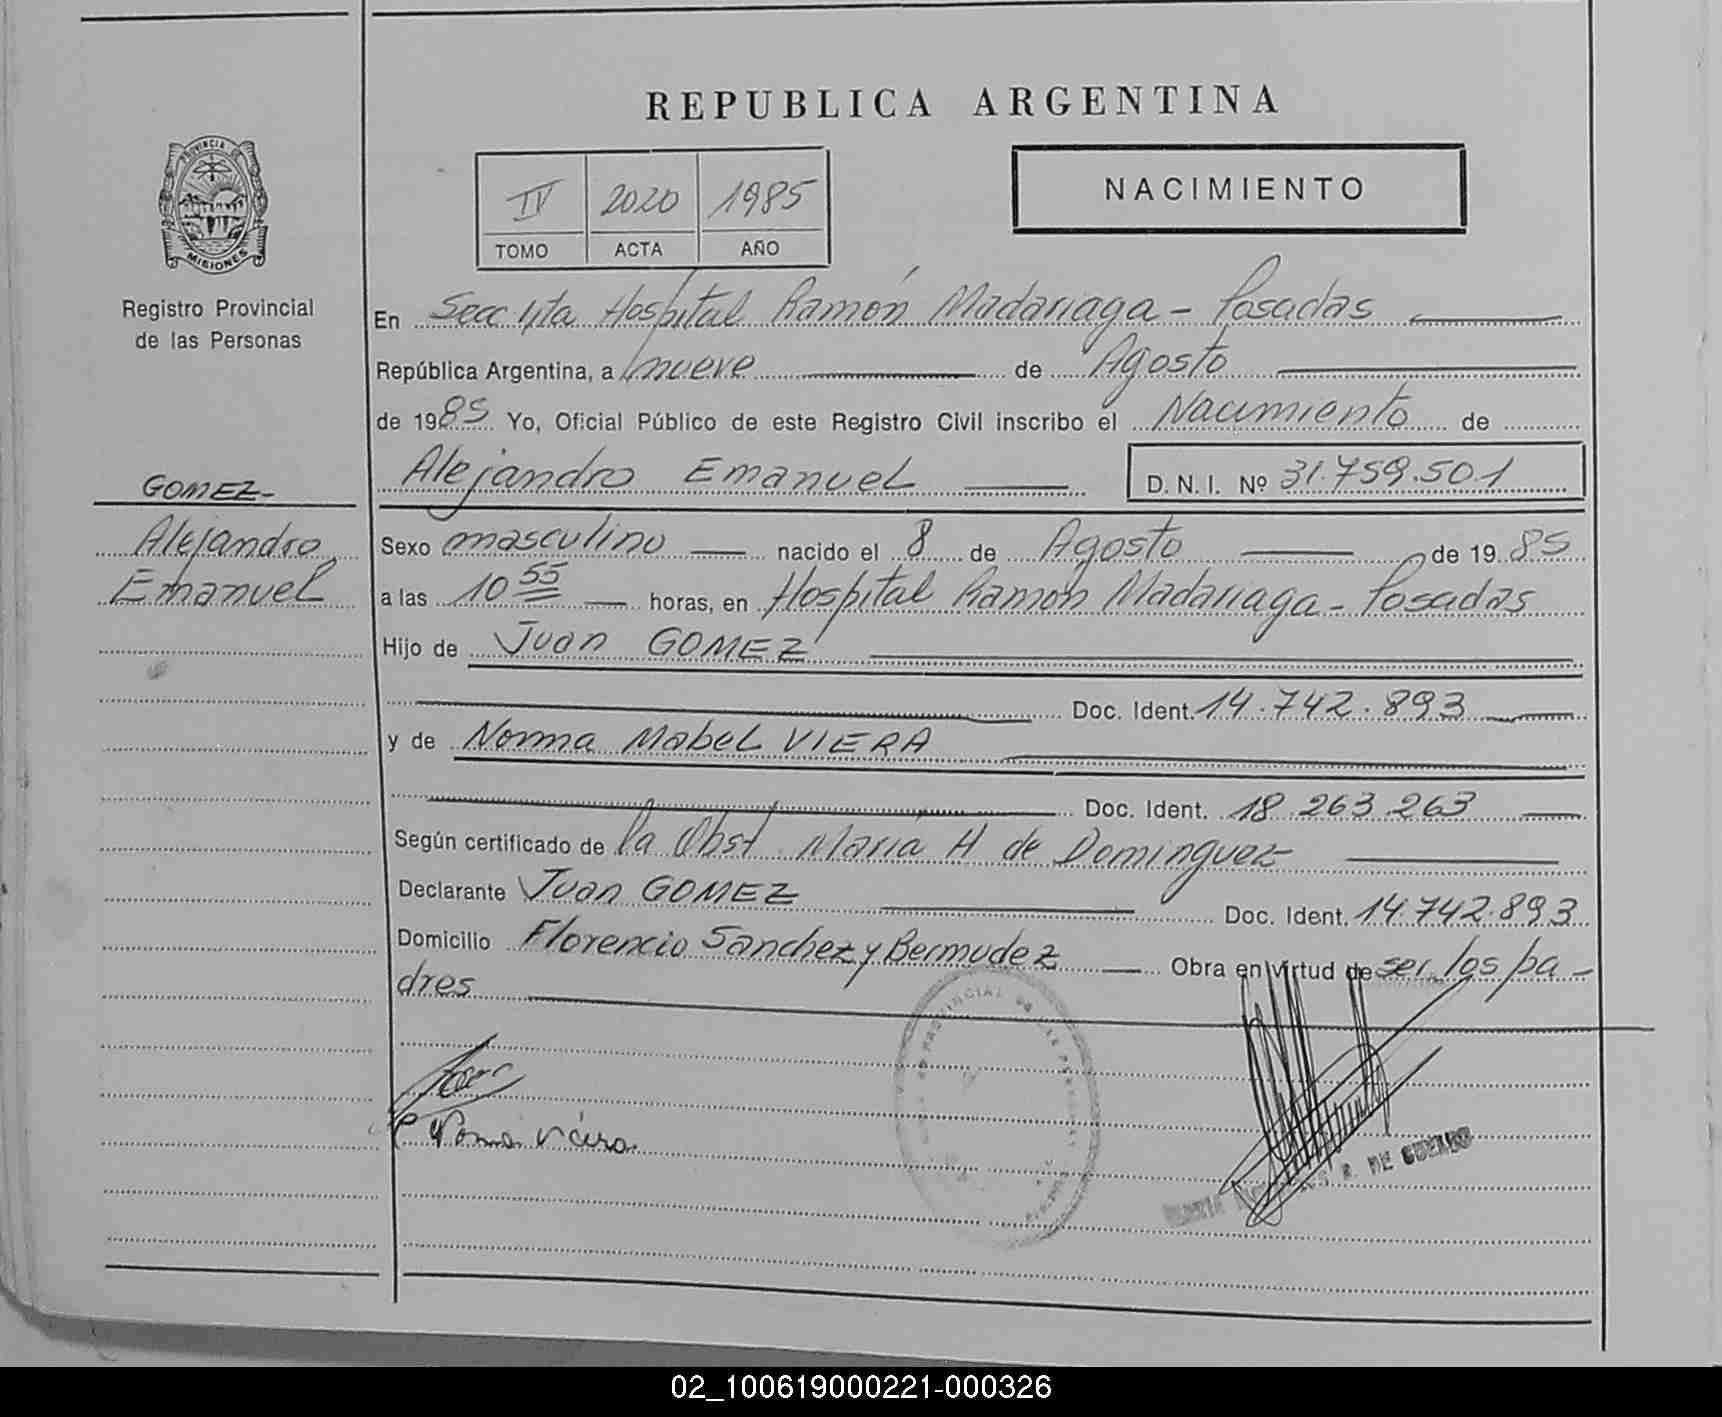 REPUBLICA ARGENTINA
PROVINCIA DE
MISIONES
Registro Provincial
de las Personas
IV 2020 1985
TOMO ACTA AÑO
NACIMIENTO
En Secc 4ta Hospital Ramón Madariaga - Posadas
República Argentina, a nueve de Agosto
de 1985 Yo, Oficial Público de este Registro Civil inscribo el Nacimiento de
Alejandro Emanuel D.N.I. Nº 31.759.501
GOMEZ-
Alejandro
Emanuel
Sexo masculino nacido el 8 de Agosto de 1985
a las 10 55 horas, en Hospital Ramón Madariaga - Posadas
Hijo de Juan GOMEZ
Doc. Ident. 14.742.893
y de Norma Mabel VIERA
Doc. Ident. 18.263.263
Según certificado de la Obst. Maria H de Dominguez
Declarante Juan GOMEZ Doc. Ident. 14.742.893
Domicilio Florencio Sanchez y Bermudez Obra en virtud de ser los pa-
dres
Norma Viera
02_100619000221-000326